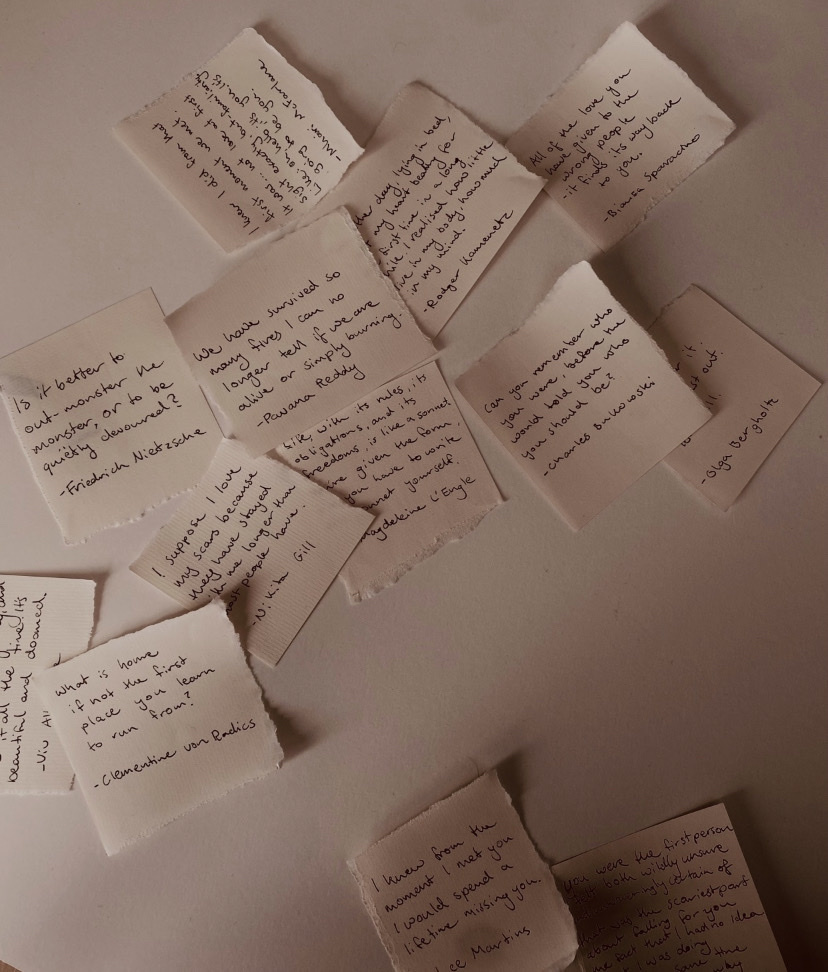 I knew I did from that
first moment we met.
It was... not love at first
sight exactly, but - familiarity.
Like: oh, hello, it's you. It's
going to be you.
-Mhairi McFarlane
the day, lying in bed,
my heart beating for
first time in a long
while I realised how little
live in my body, how much
in my mind.
-Rodger Kamenetz
All of the love you
have given to the
wrong people
-it finds its way back
to you.
-Bianca Sparacino
We have survived so
many fires I can no
longer tell if we are
alive or simply burning.
-Pavana Reddy
Is it better to
out-monster the
monster, or to be
quietly devoured?
-Friedrich Nietzsche
life, with its rules, its
obligations, and its
freedoms, is like a sonnet
are given the form,
you have to write
sonnet yourself.
Magdeleine L'Engle
Can you remember who
you were, before the
world told you who
you should be?
-Charles Bukowski
it.
out.
-Olga Bergholtz
I suppose I love
my scars because
they have stayed
with me longer than
most people have.
-Nikita Gill
it all the time. It's
beautiful and doomed.
-Viv
What is home
if not the first
place you learn
to run from?
-Clementine von Radics
I knew from the
moment I met you
I would spend a
lifetime missing you.
Lee Martins
You were the first person
both wildly unsure
certain of
was the scariest part
about falling for you
the fact that I had no idea
I was doing
sure